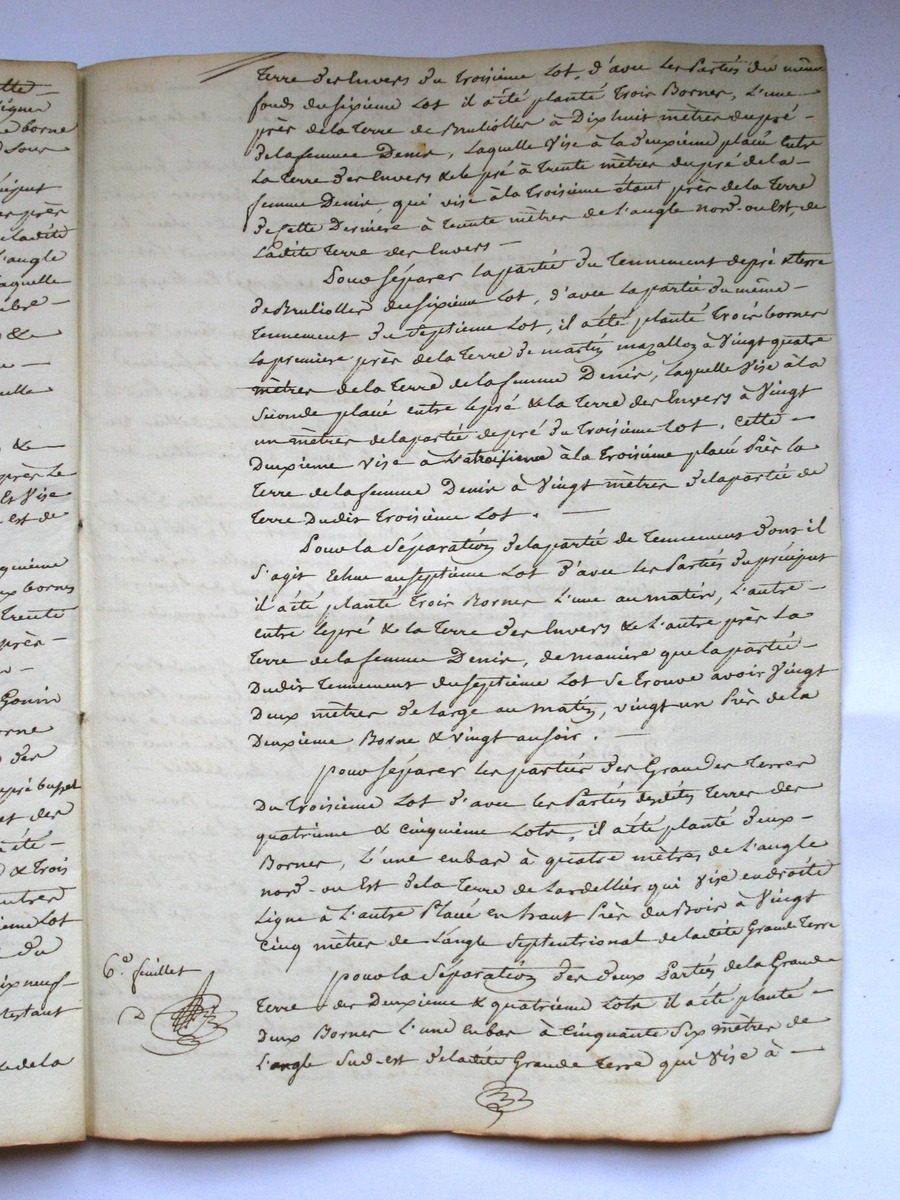 Terre des Envers du troisième Lot, d'avec les Parties du même
fonds du sixième Lot il a été planté Trois Bornes, L'une
près de la Terre de Bruliolles à Dix huit mètres du pré
de la femme Denis, Laquelle Vise à la deuxième placée Entre
La Terre des Envers & le pré à Trente mètres du pré de la
femme Denis qui vise à la Troisième étant près de la Terre
de Cette Dernière à Trente mètres de L'angle nord-ouest, de
Ladite Terre des Envers
Pour séparer la partie du Tennement de pré & terre
de Bruliolles du sixième Lot, d'avec la partie du même
Tennement du septieme Lot, il a été planté Trois bornes
La premiere près de la Terre de martin mazallon à Vingt quatre
mètres de la Terre de la femme Denis, laquelle Vise à la
seconde placée entre le pré & la Terre des Envers à Vingt
un mètres de la partie de pré du Troisième Lot. Cette
Deuxième vise à La troisieme à la Troisième placée Près la
Terre de la femme Denis à Vingt mètres de la partie de
Terre Dudit Troisième Lot.
Pour la séparation de la partie de Tennement dont il
S'agit Echue au septieme Lot d'avec les Parties du préciput
il a été planté Trois Bornes L'une au matin, L'autre
entre le pré & la Terre des Envers & L'autre près La
Terre de la femme Denis, de manière que la partie
Dudit Tennement du septieme Lot se trouve avoir Vingt
Deux mètres de large au matin, vingt un Près de la
Deuxième Borne & vingt au soir.
pour séparer les parties des Grandes Terres
Du troisième Lot d'avec les Parties desdites Terres des
quatrieme & Cinquième Lots, il a été planté deux
Bornes, L'une en bas à quatre mètres de L'angle
nord-ouest de la Terre de Lardellier qui Vise en droite
Ligne à L'autre Placée en haut Près du Bois à Vingt
Cinq mètres de L'angle septentrional de ladite Grande Terre
pour la séparation des deux Parties de la Grande
Terre des Deuxième & quatrieme Lots il a été planté
Deux Bornes L'une en bas à Cinquante Six mètres de
L'angle Sud-est de ladite Grande Terre qui Vise à
6.e feuillet